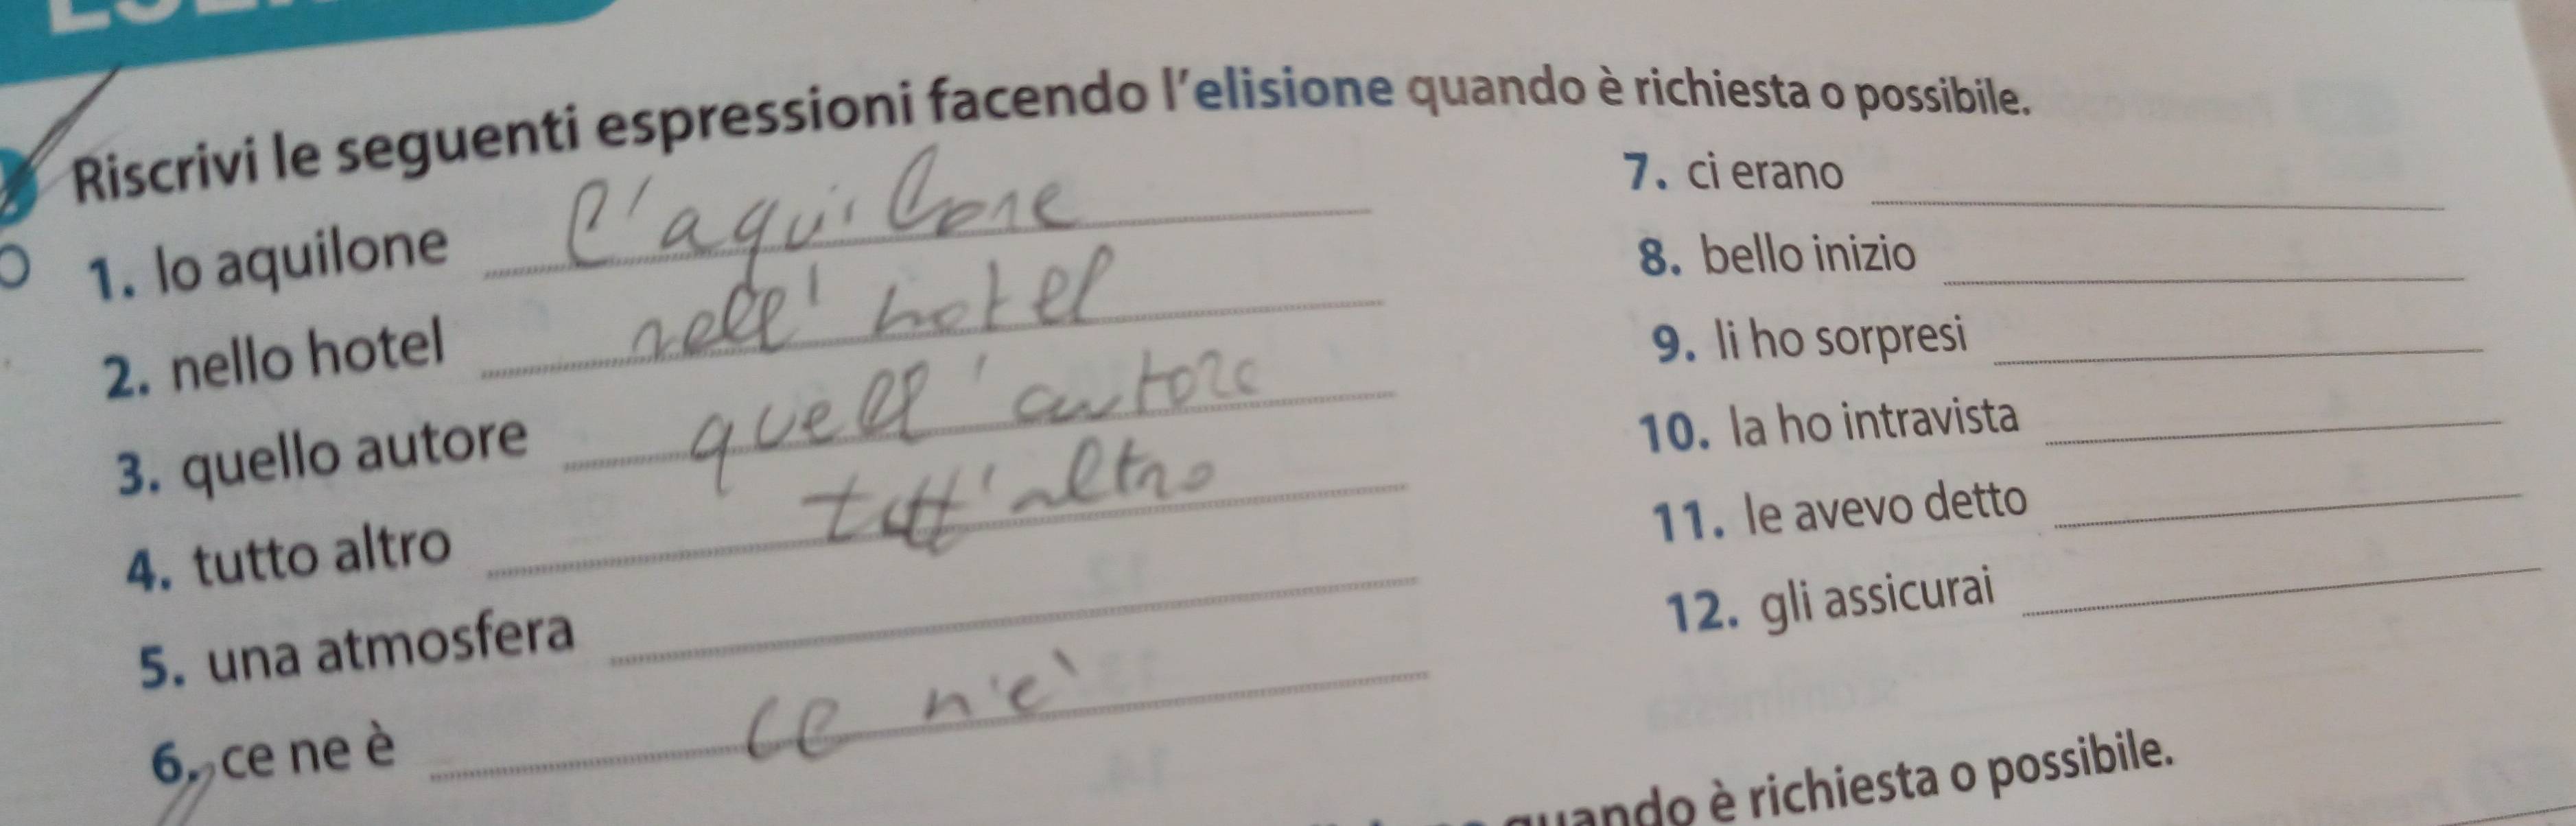 Riscrivi le seguenti espressioni facendo l'elisione quando è richiesta o possibile.
1. lo aquilone l'aquilone
2. nello hotel nell'hotel
3. quello autore quell'autore
4. tutto altro tutt'altro
5. una atmosfera
6. ce ne è ce n'è
7. ci erano
8. bello inizio
9. li ho sorpresi
10. la ho intravista
11. le avevo detto
12. gli assicurai
quando è richiesta o possibile.